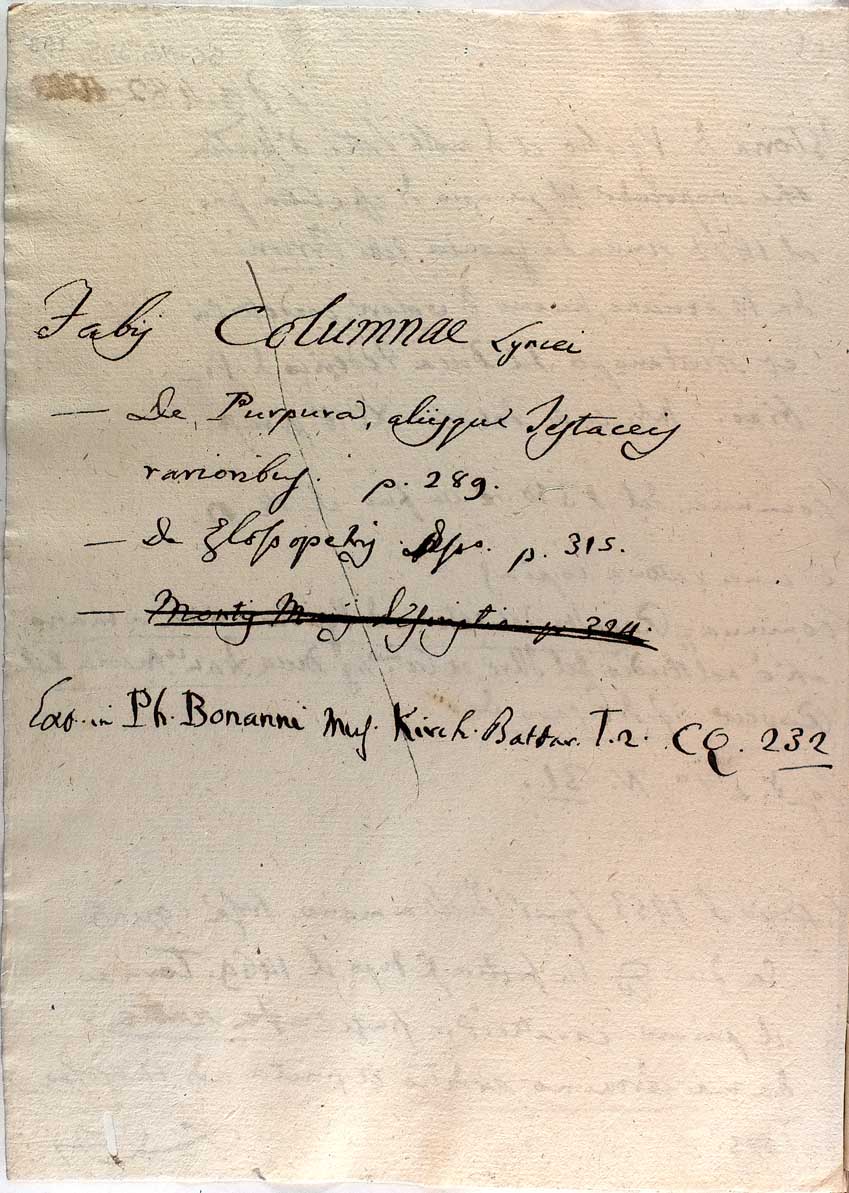 Fabij Columnae Lyncei
— De Purpura, aliisque Testaceis
rarioribus. p. 289.
— De Glossopetris p. 315.
— Montis p. 324.
Ext. in Ph. Bonanni Mus. Kirch. Battar. T. 2. CQ. 232